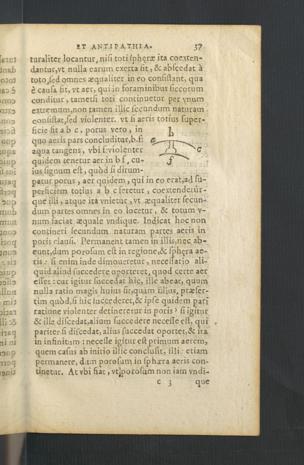 ET ANTIPATHIA. 37
turaliter locantur, nisi toti sphæræ ita coexten-
dantur, vt nulla earum exerta sit, & abscedat à
toto, sed omnes æqualiter in eo consistant, qua
è causa fit, vt aer, qui in foraminibus siccorum
conditur, tametsi toti continuetur per vnum
extremum, non tamen illic secundum naturam
consistat, sed violenter. vt si aeris totius super-
ficie sit a b c. porus vero, in
quo aeris pars concluditur, b. f.
aqua tangens, vbi s. violenter
quidem tenetur aer in b f, cu-
ius signum est, quòd si dirum-
patur porus, aer quidem, qui in eo erat, ad su-
perficiem totius a b c feretur, coextendeturʹ-
que illi, atque ita vnietur, vt æqualiter secun-
dum partes omnes in eo locetur, & totum v-
num faciat æquale vndique. Indicat hoc non
contineri secundum naturam partes aeris in
poris clausi. Permanent tamen in illis, nec ab-
eunt, dum porosum est in regione, & sphæra ae-
ris: si enim inde dimouretur, necessario ali-
quid aliud succedere oporteret, quod certe aer
esset: cur igitur succedat hic, ille abeat, quum
nulla ratio magis huius sit, quam illius, præser-
tim quòd, si hic succederet, & ipse quidem pari
ratione violenter detineretur in poris? si igitur
& ille discedat, alium succedere necesse est, qui
pariter si discedat, alius succedat oportet, & ita
in infinitum: necesse igitur est primum aerem,
quem casus ab initio illic conclusit, illi etiam
permanere, dum porosum in sphæra aeris con-
tinetur. At vbi fiat, vt porosum non iam vndi-
c 3 que
b
a c
f